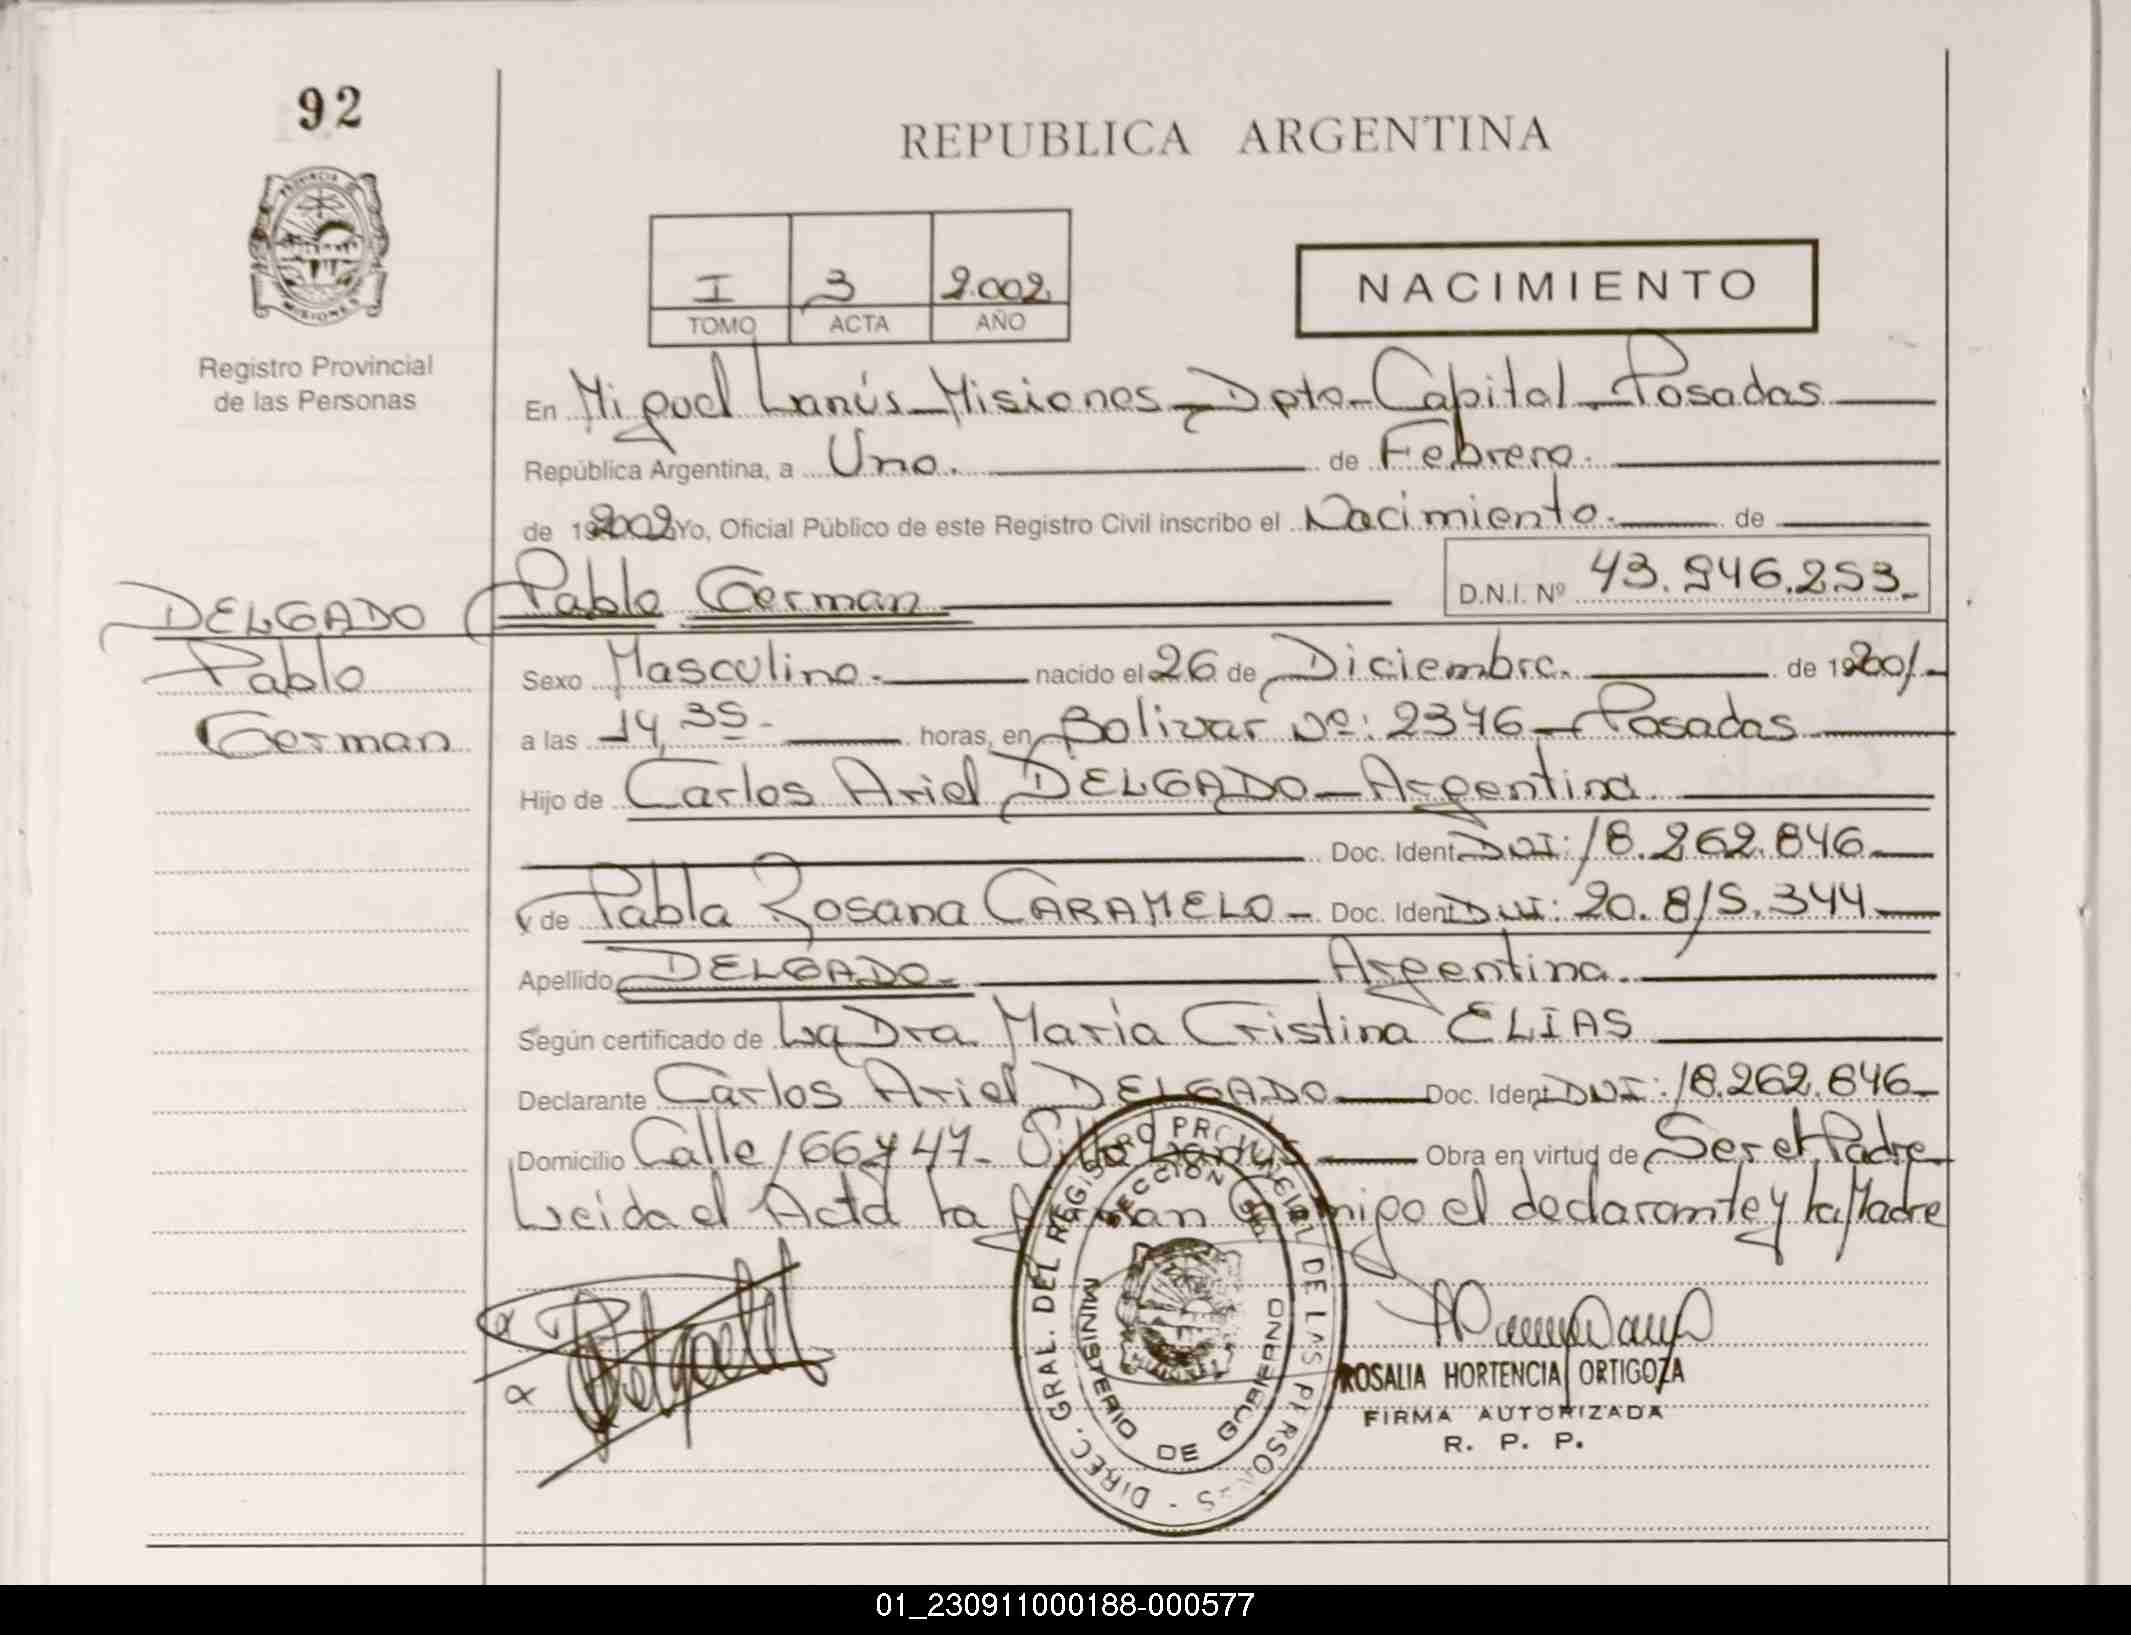 92
REPUBLICA ARGENTINA
PROVINCIA DE
MISIONES
Registro Provincial
de las Personas
I 3 2.002
TOMO ACTA AÑO
NACIMIENTO
En Miguel Lanús - Misiones - Dpto - Capital - Posadas
República Argentina, a Uno. de Febrero.
de 2002 Yo, Oficial Público de este Registro Civil inscribo el Nacimiento. de
Pablo German D.N.I. Nº 43.946.253.
DELGADO
Pablo
German
Sexo Masculino. nacido el 26 de Diciembre. de 2001
a las 14,35 horas, en Bolivar Nº: 2376 - Posadas
Hijo de Carlos Ariel DELGADO - Argentina
Doc. Ident DNI: 18.262.846
y de Pabla Rosana CARAMELO - Doc. Ident DNI: 20.815.344
Apellido DELGADO - Argentina.
Según certificado de La Dra María Cristina ELIAS
Declarante Carlos Ariel DELGADO Doc. Ident DNI: 18.262.846
Domicilio Calle 166 y 47 - Villa Lanus Obra en virtud de Ser el Padre
Leida el Acta la firman Conmigo el declarante y la Madre
DIREC. GRAL. DEL REGISTRO PROVINCIAL DE LAS PERSONAS
MINISTERIO DE GOBIERNO
ROSALIA HORTENCIA ORTIGOZA
FIRMA AUTORIZADA
R. P. P.
01_230911000188-000577